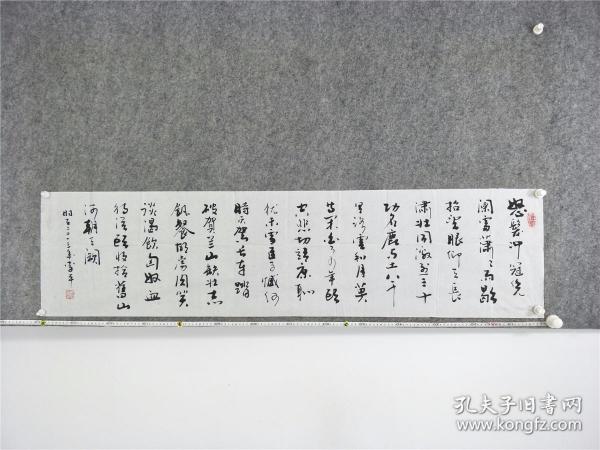 怒髮冲冠凭
阑雷萧萧雨歇
抬望眼仰天長
啸壮怀激烈三十
功名塵与土八千
里路雲和月莫
等闲白了少年頭
空悲切靖康恥
犹未雪臣子憾何
時灭驾长车踏
破贺兰山缺壮志
飢餐胡虏肉笑
谈渴飲匈奴血
待從頭收拾舊山
河朝天阙
孔夫子旧书网
www.kongfz.com